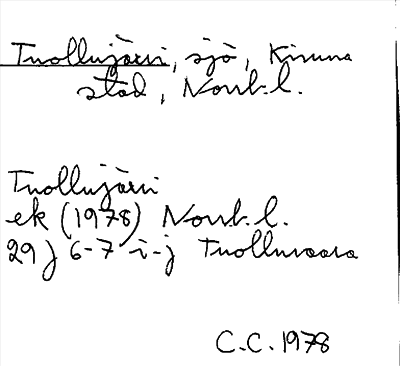 Tuollujärvi, sjö, Kiruna
stad, Norrb.l.
Tuollujärvi
ek (1978) Norrb.l.
29J 6-7 i-j Tuolluvaara
C.C. 1978